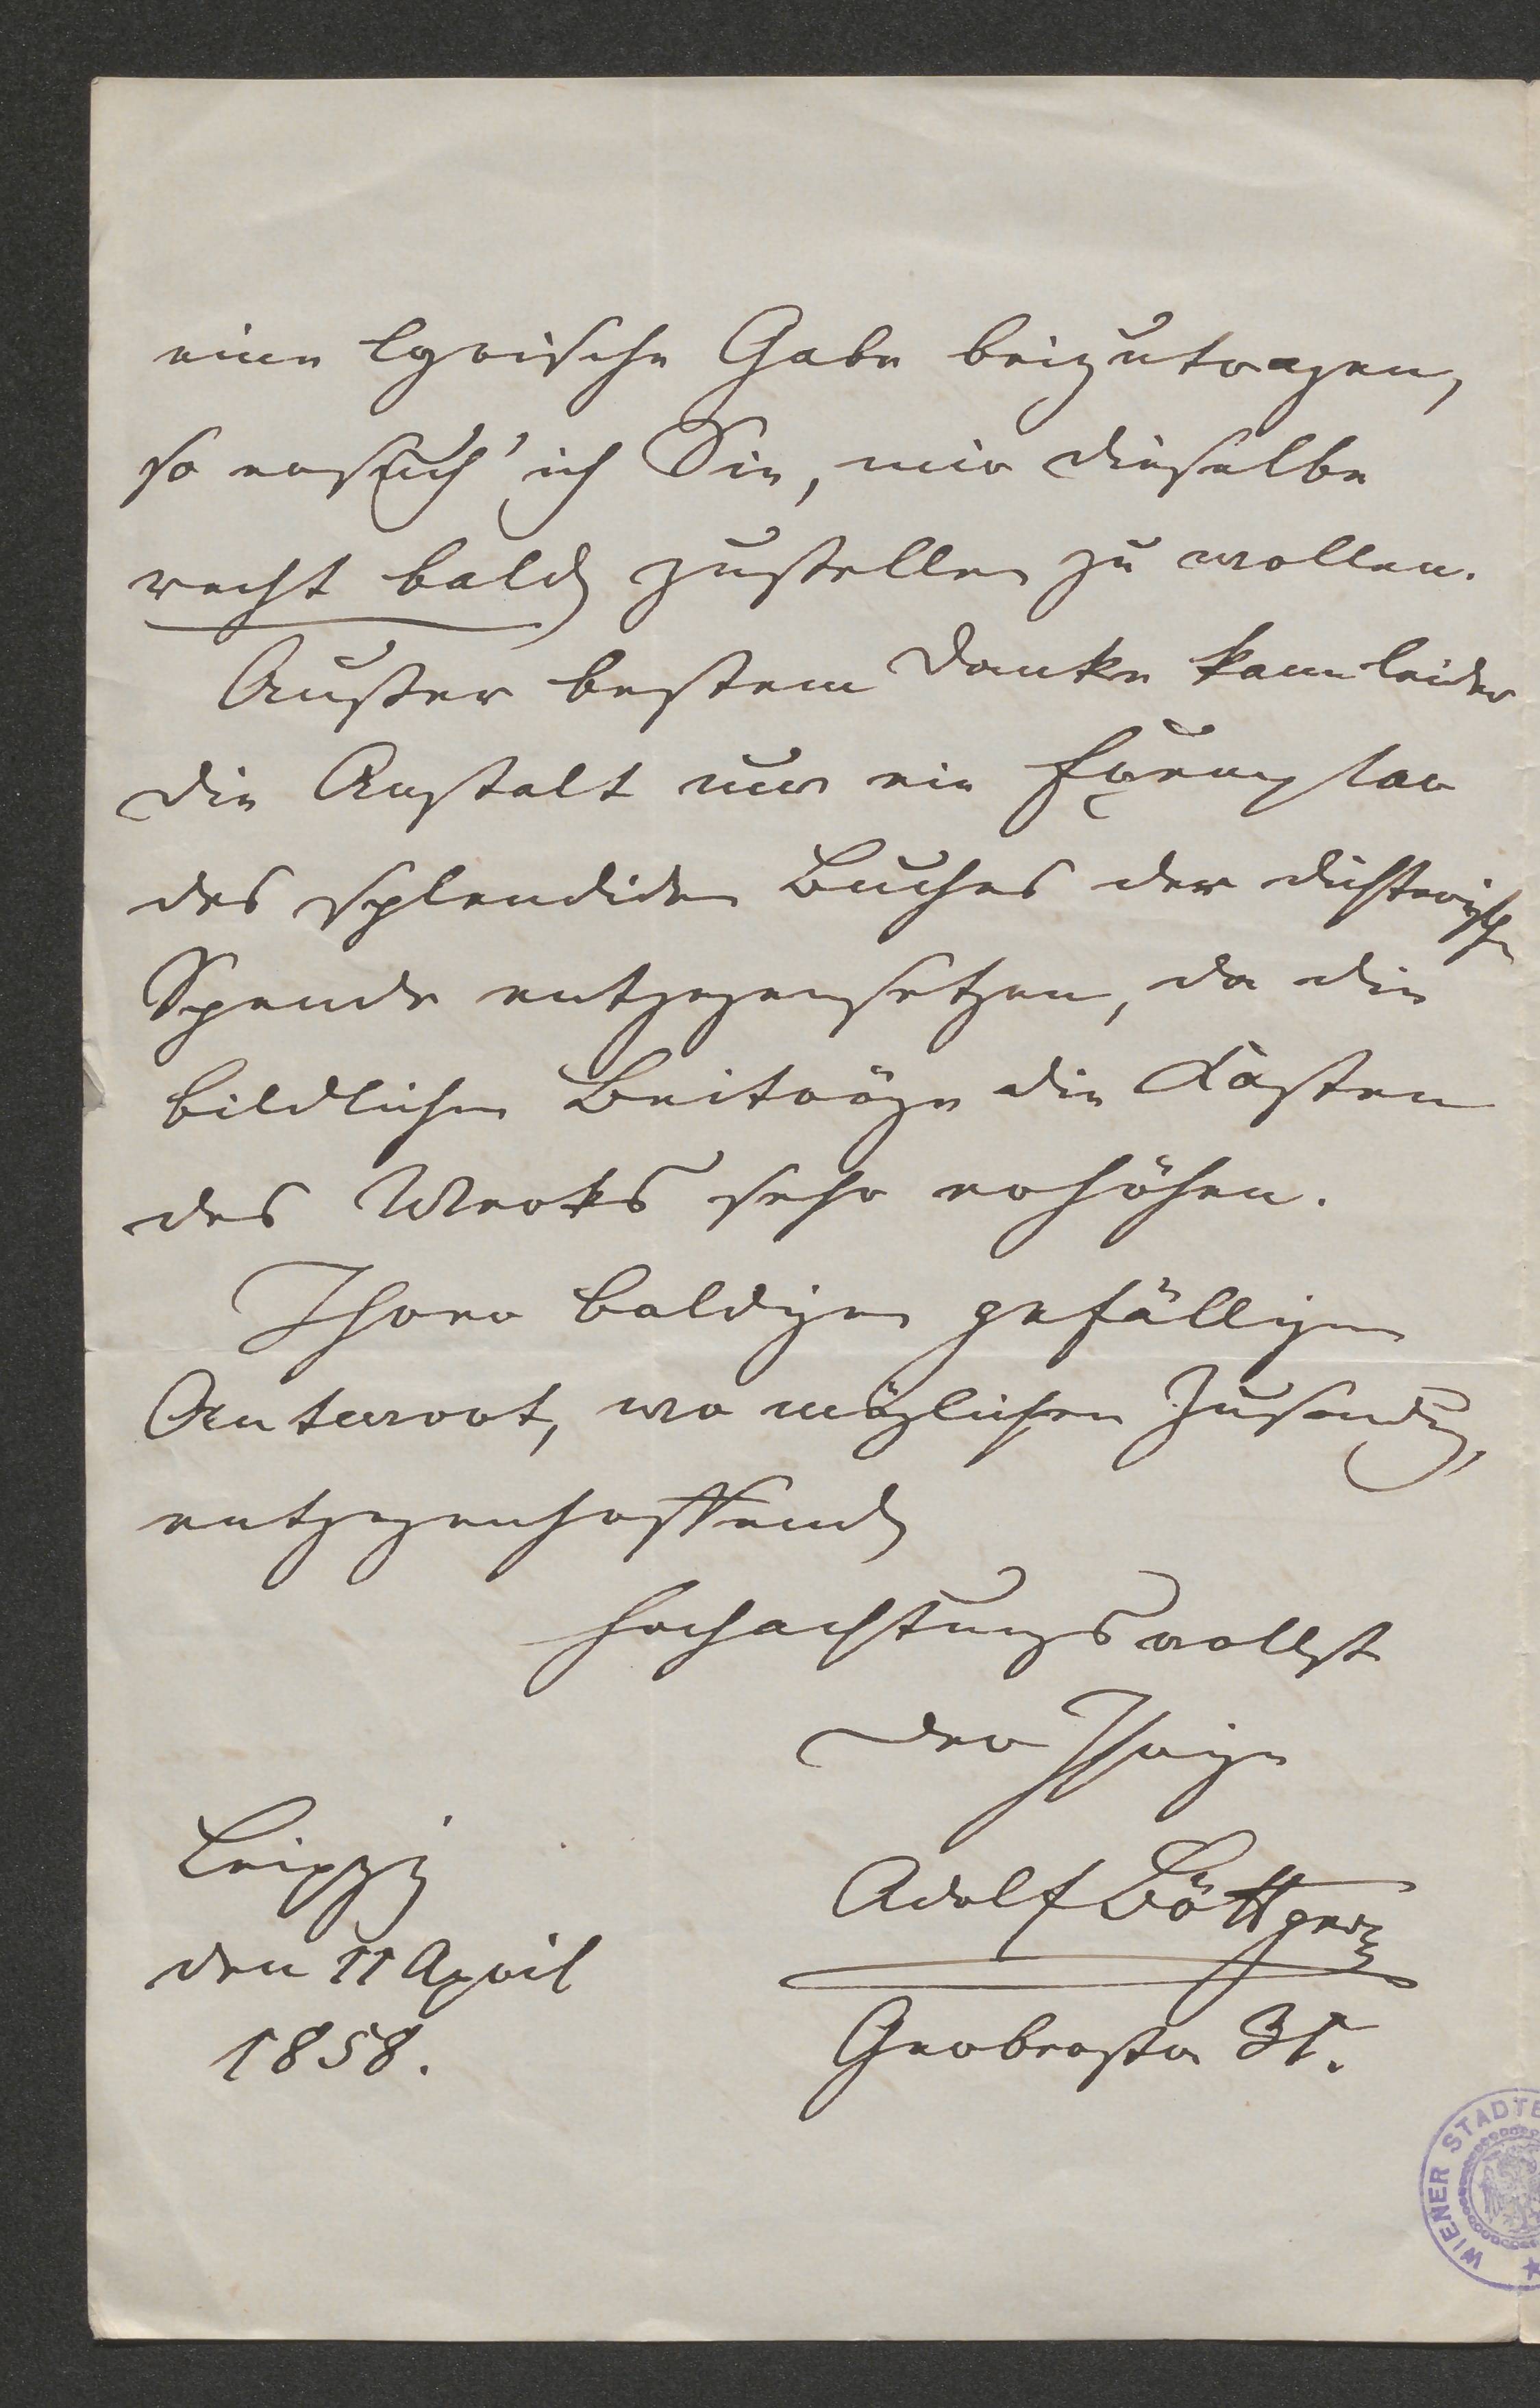 eine lyrische Gabe beizutragen,
so ersuch' ich Sie, mir dieselbe
recht bald zustellen zu wollen.
Außer bestem Danke kann leider
die Anstalt nur ein Exemplar
des splendiden Buches der dichterischen
Spende entgegensetzen, da die
bildlichen Beiträge die Kosten
des Werks sehr erhöhen.
Ihrer baldigen gefälligen
Antwort, wo möglichen Zusendung,
entgegenhoffend
hochachtungsvollst
der Ihrige
Adolf Böttger
Gerberstr 31.
Leipzig
den 11 April
1858.
WIENER STADTB